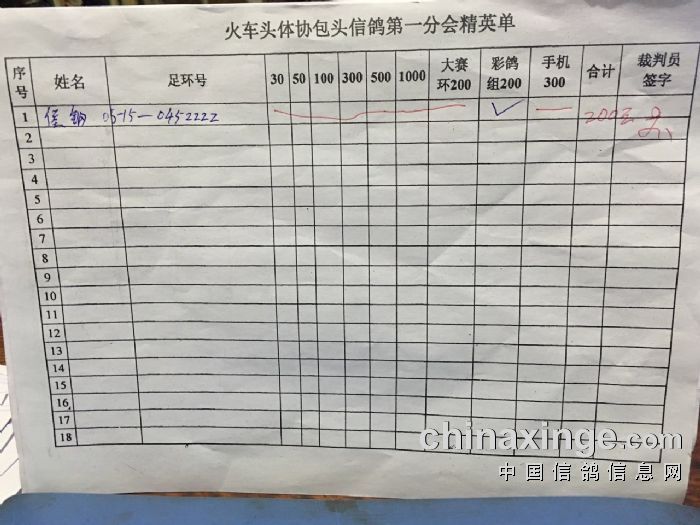 火车头体协包头信鸽第一分会精英单
序号 姓名 足环号 30 50 100 300 500 1000 大赛环200 彩鸽组200 手机300 合计 裁判员签字
1 05-15-0452222 ✓ 200元
2
3
4
5
6
7
8
9
10
11
12
13
14
15
16
17
18
chinaxinge.com
中国信鸽信息网